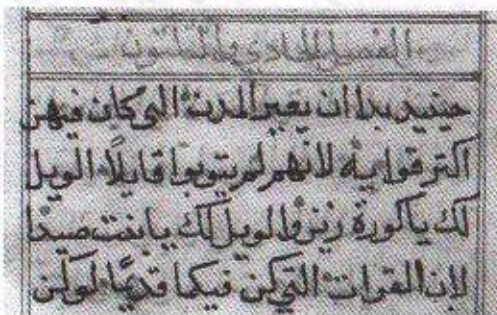 الفصل الحادي والثلثون
حينيد بدا ان يعير المدن التي كان فيهن
اكتر قواته لانهم لم يتوبوا قايلا الويل
لك ياكورة زين والويل لك يا بنت صيدا
لان القوات التي كن فيكما قديما لو كن